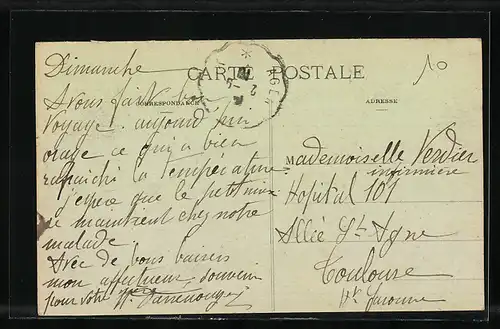 Dimanche
CARTE POSTALE
10
CORRESPONDANCE
ADRESSE
Avons fait
voyage. aujourd'hui
orage ce qui a bien
rafraichi la température
j'espère que le petit mieux
se maintient chez notre
malade.
Avec de bons baisers
mon affectueux souvenir
pour votre
Mademoiselle Verdier
infirmière
Hopital 101
Allée St Agne
Toulouse
Hte Garonne